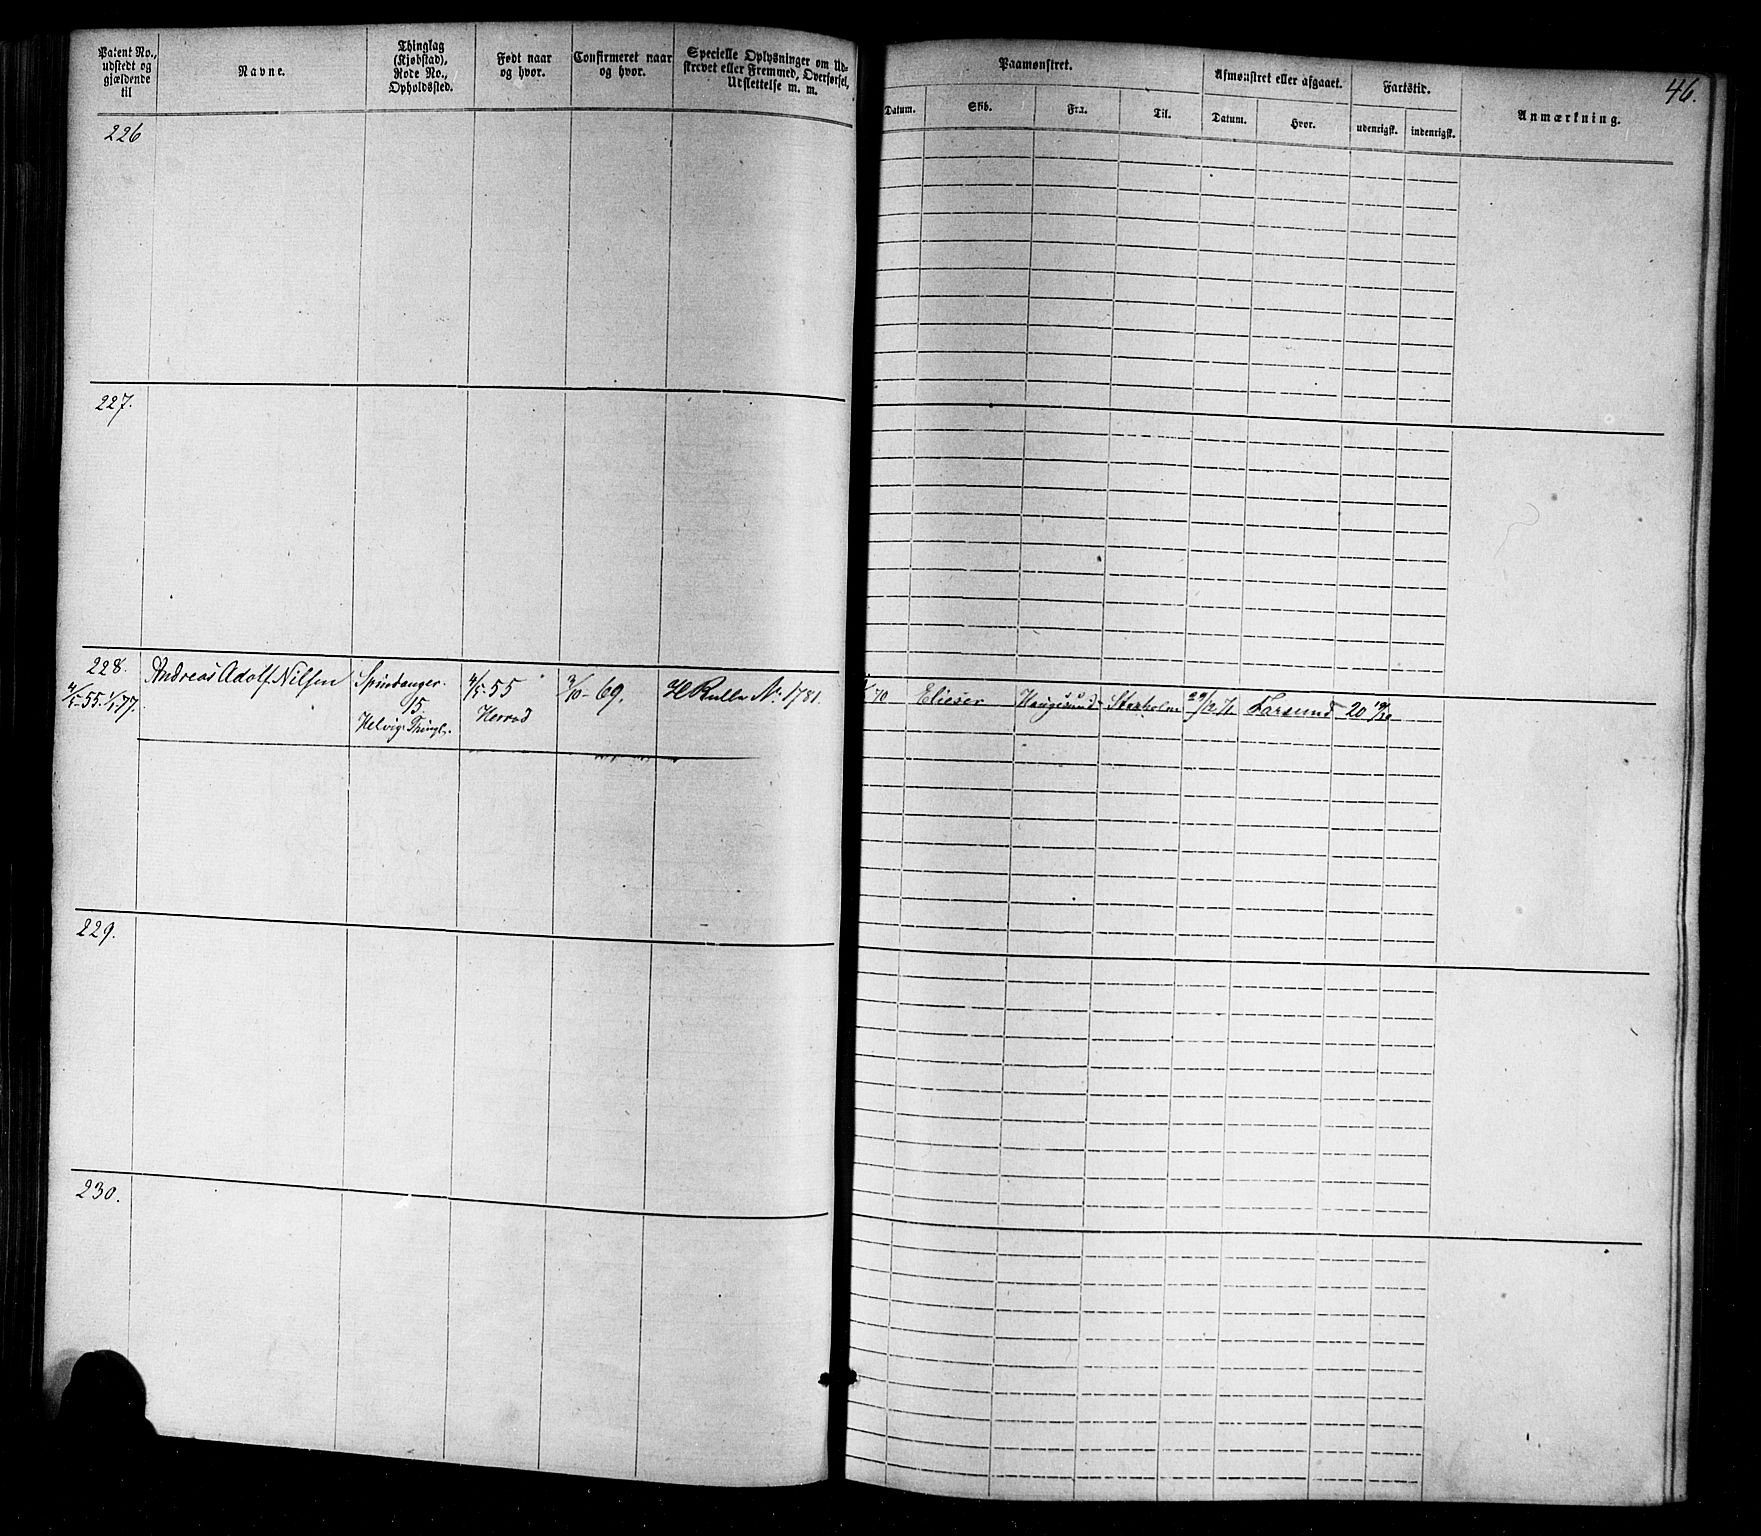 Patent No.,
udstedt og
gjældende
til
Navne.
Thinglag
(Kjøbstad),
Rode No.,
Opholdssted.
Født naar
og hvor.
Confirmeret naar
og hvor.
Specielle Oplysninger om Ud-
skrevet eller Fremmed, Overførsel,
Udslettelse m. m.
Paamønstret.
Datum.
Skib.
Fra.
Til.
Afmønstret eller afgaaet.
Datum.
Hvor.
Fartstid.
udenrigsk.
indenrigsk.
Anmærkning.
46.
226
227.
228.
Andreas Adolf Nilsen
15.
Helvig Thingl.
55
Herred
69.
H Rulle No. 1781.
70
Elieser
Haugesund
Stokholm
Farsund
20
229.
230.